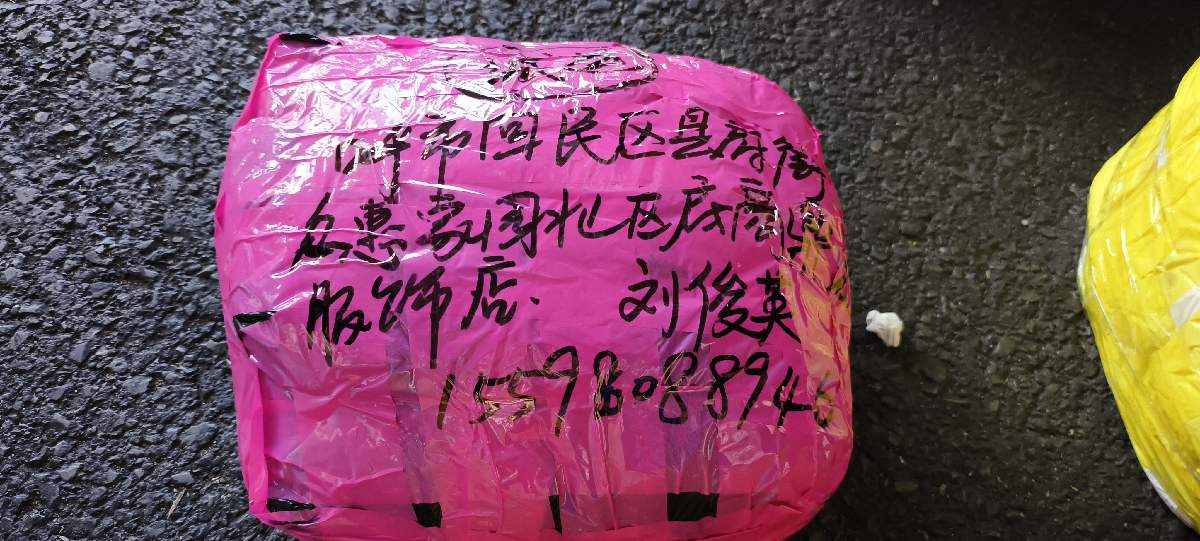 呼市回民区县府街
众惠家园北区底商
服饰店 刘俊英
15598088946